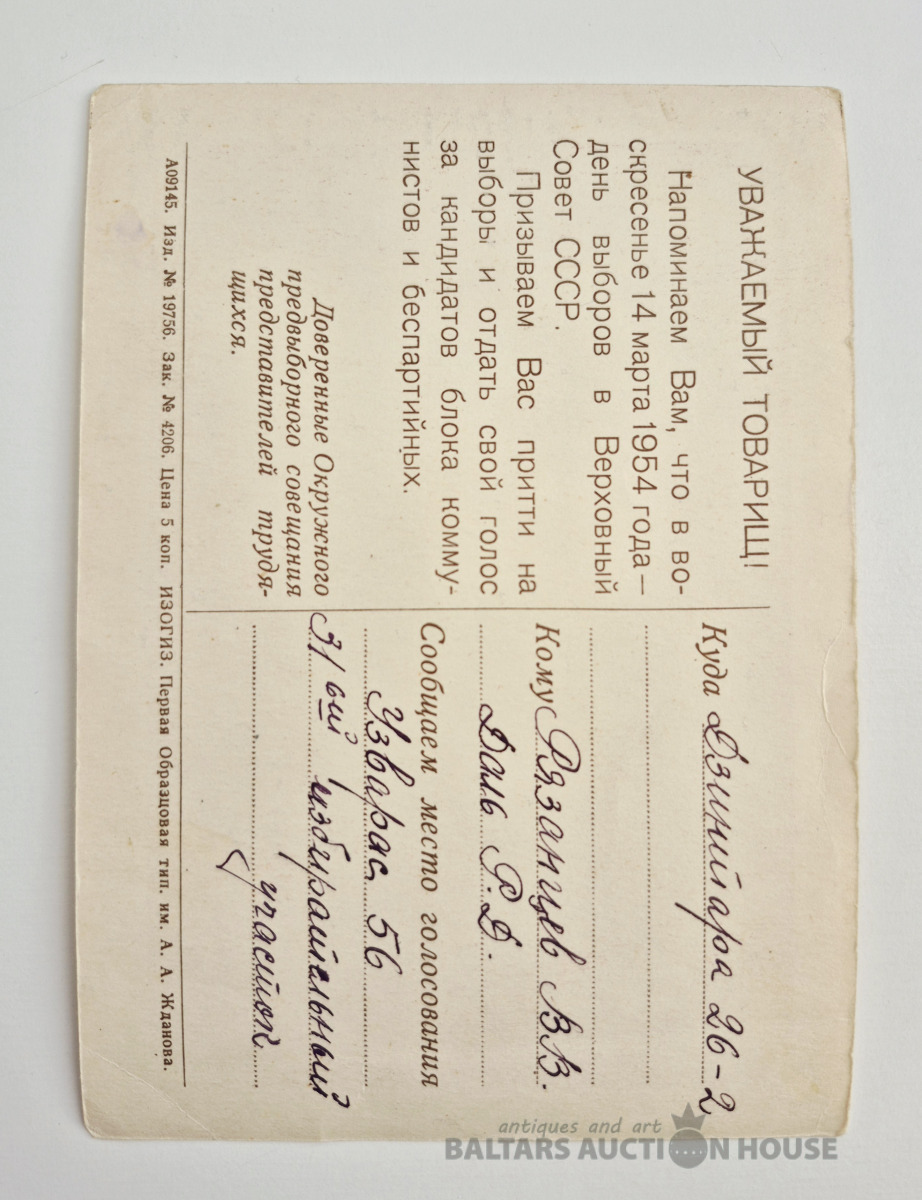 УВАЖАЕМЫЙ ТОВАРИЩ!
Напоминаем Вам, что в во-
скресенье 14 марта 1954 года —
день выборов в Верховный
Совет СССР.
Призываем Вас притти на
выборы и отдать свой голос
за кандидатов блока комму-
нистов и беспартийных.
Доверенные Окружного
предвыборного совещания
представителей трудя-
щихся.
Куда Дзинтара 26-2
Кому Рязанцев В.В.
Даль Р.Д.
Сообщаем место голосования
Узварас 56
31ый избирательный
участок
А09145. Изд. № 19756. Зак. № 4206. Цена 5 коп. ИЗОГИЗ. Первая Образцовая тип. им. А. А. Жданова.
antiques and art
BALTARS AUCTION HOUSE